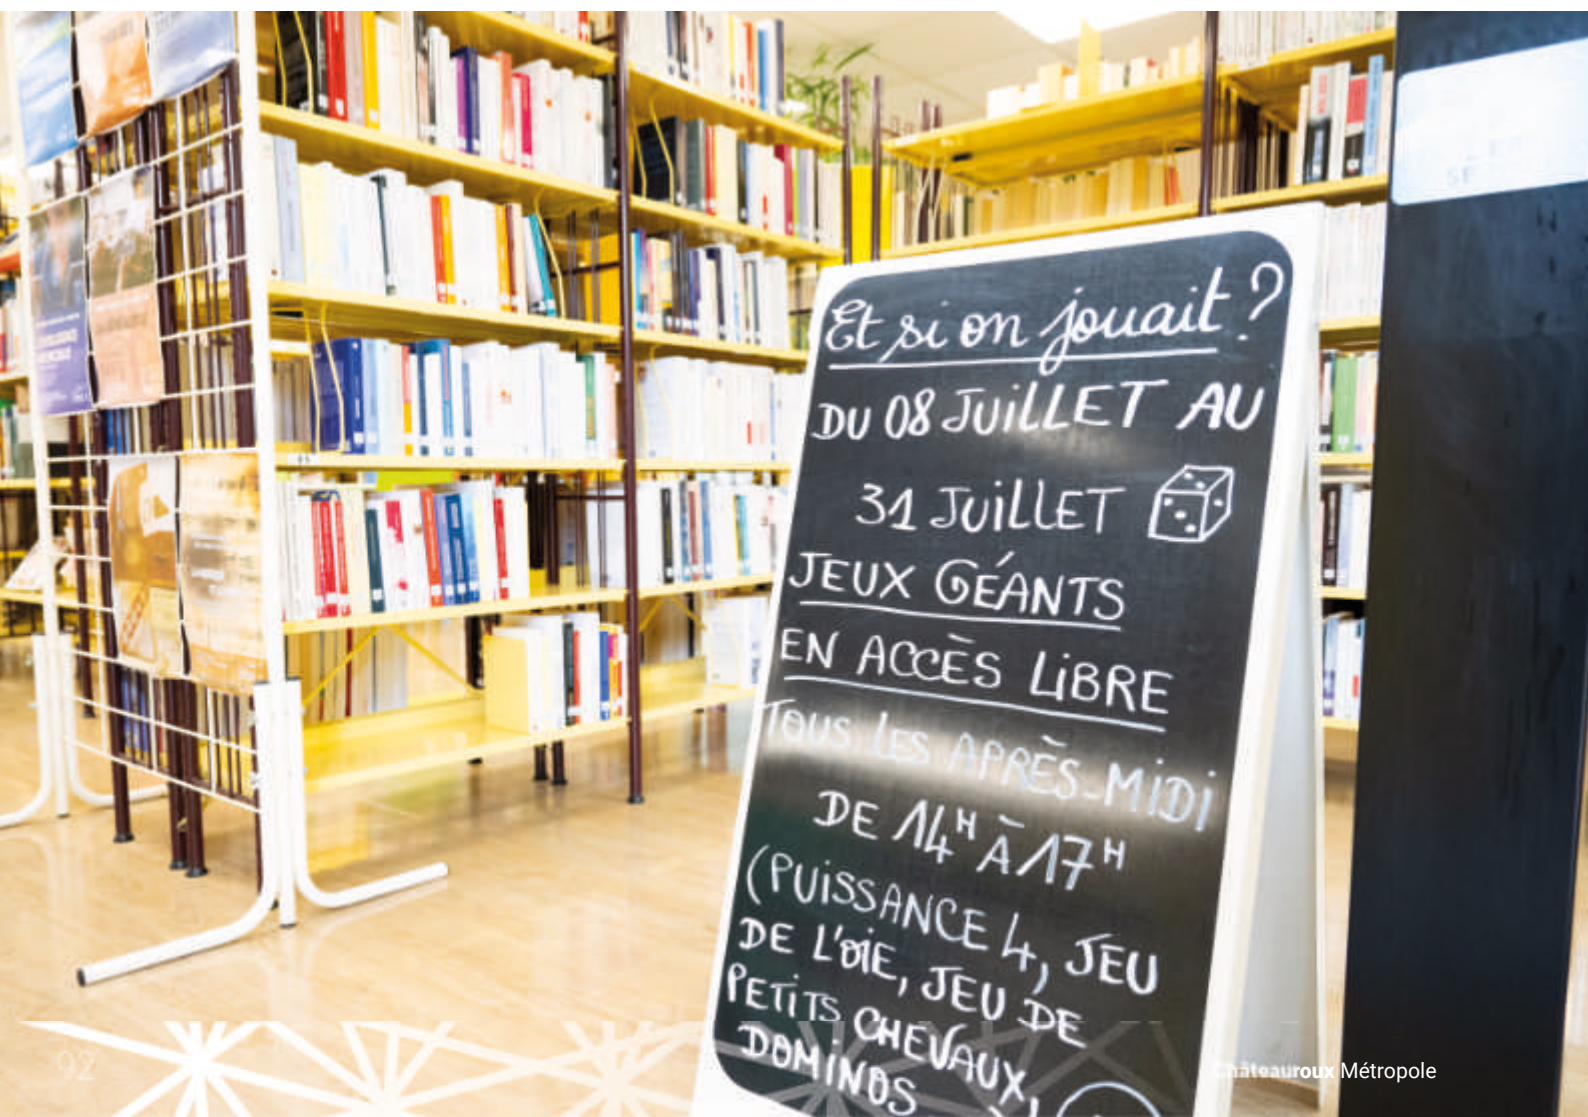 Et si on jouait ?
DU 08 JUiLLET AU
31 JUiLLET
JEUX GÉANTS
EN ACCÈS LiBRE
TOUS LES APRÈS-MiDi
DE 14H À 17H
(PUiSSANCE 4, JEU
DE L'OiE, JEU DE
PETiTS CHEVAUX,
DOMiNOS
92
Châteauroux Métropole